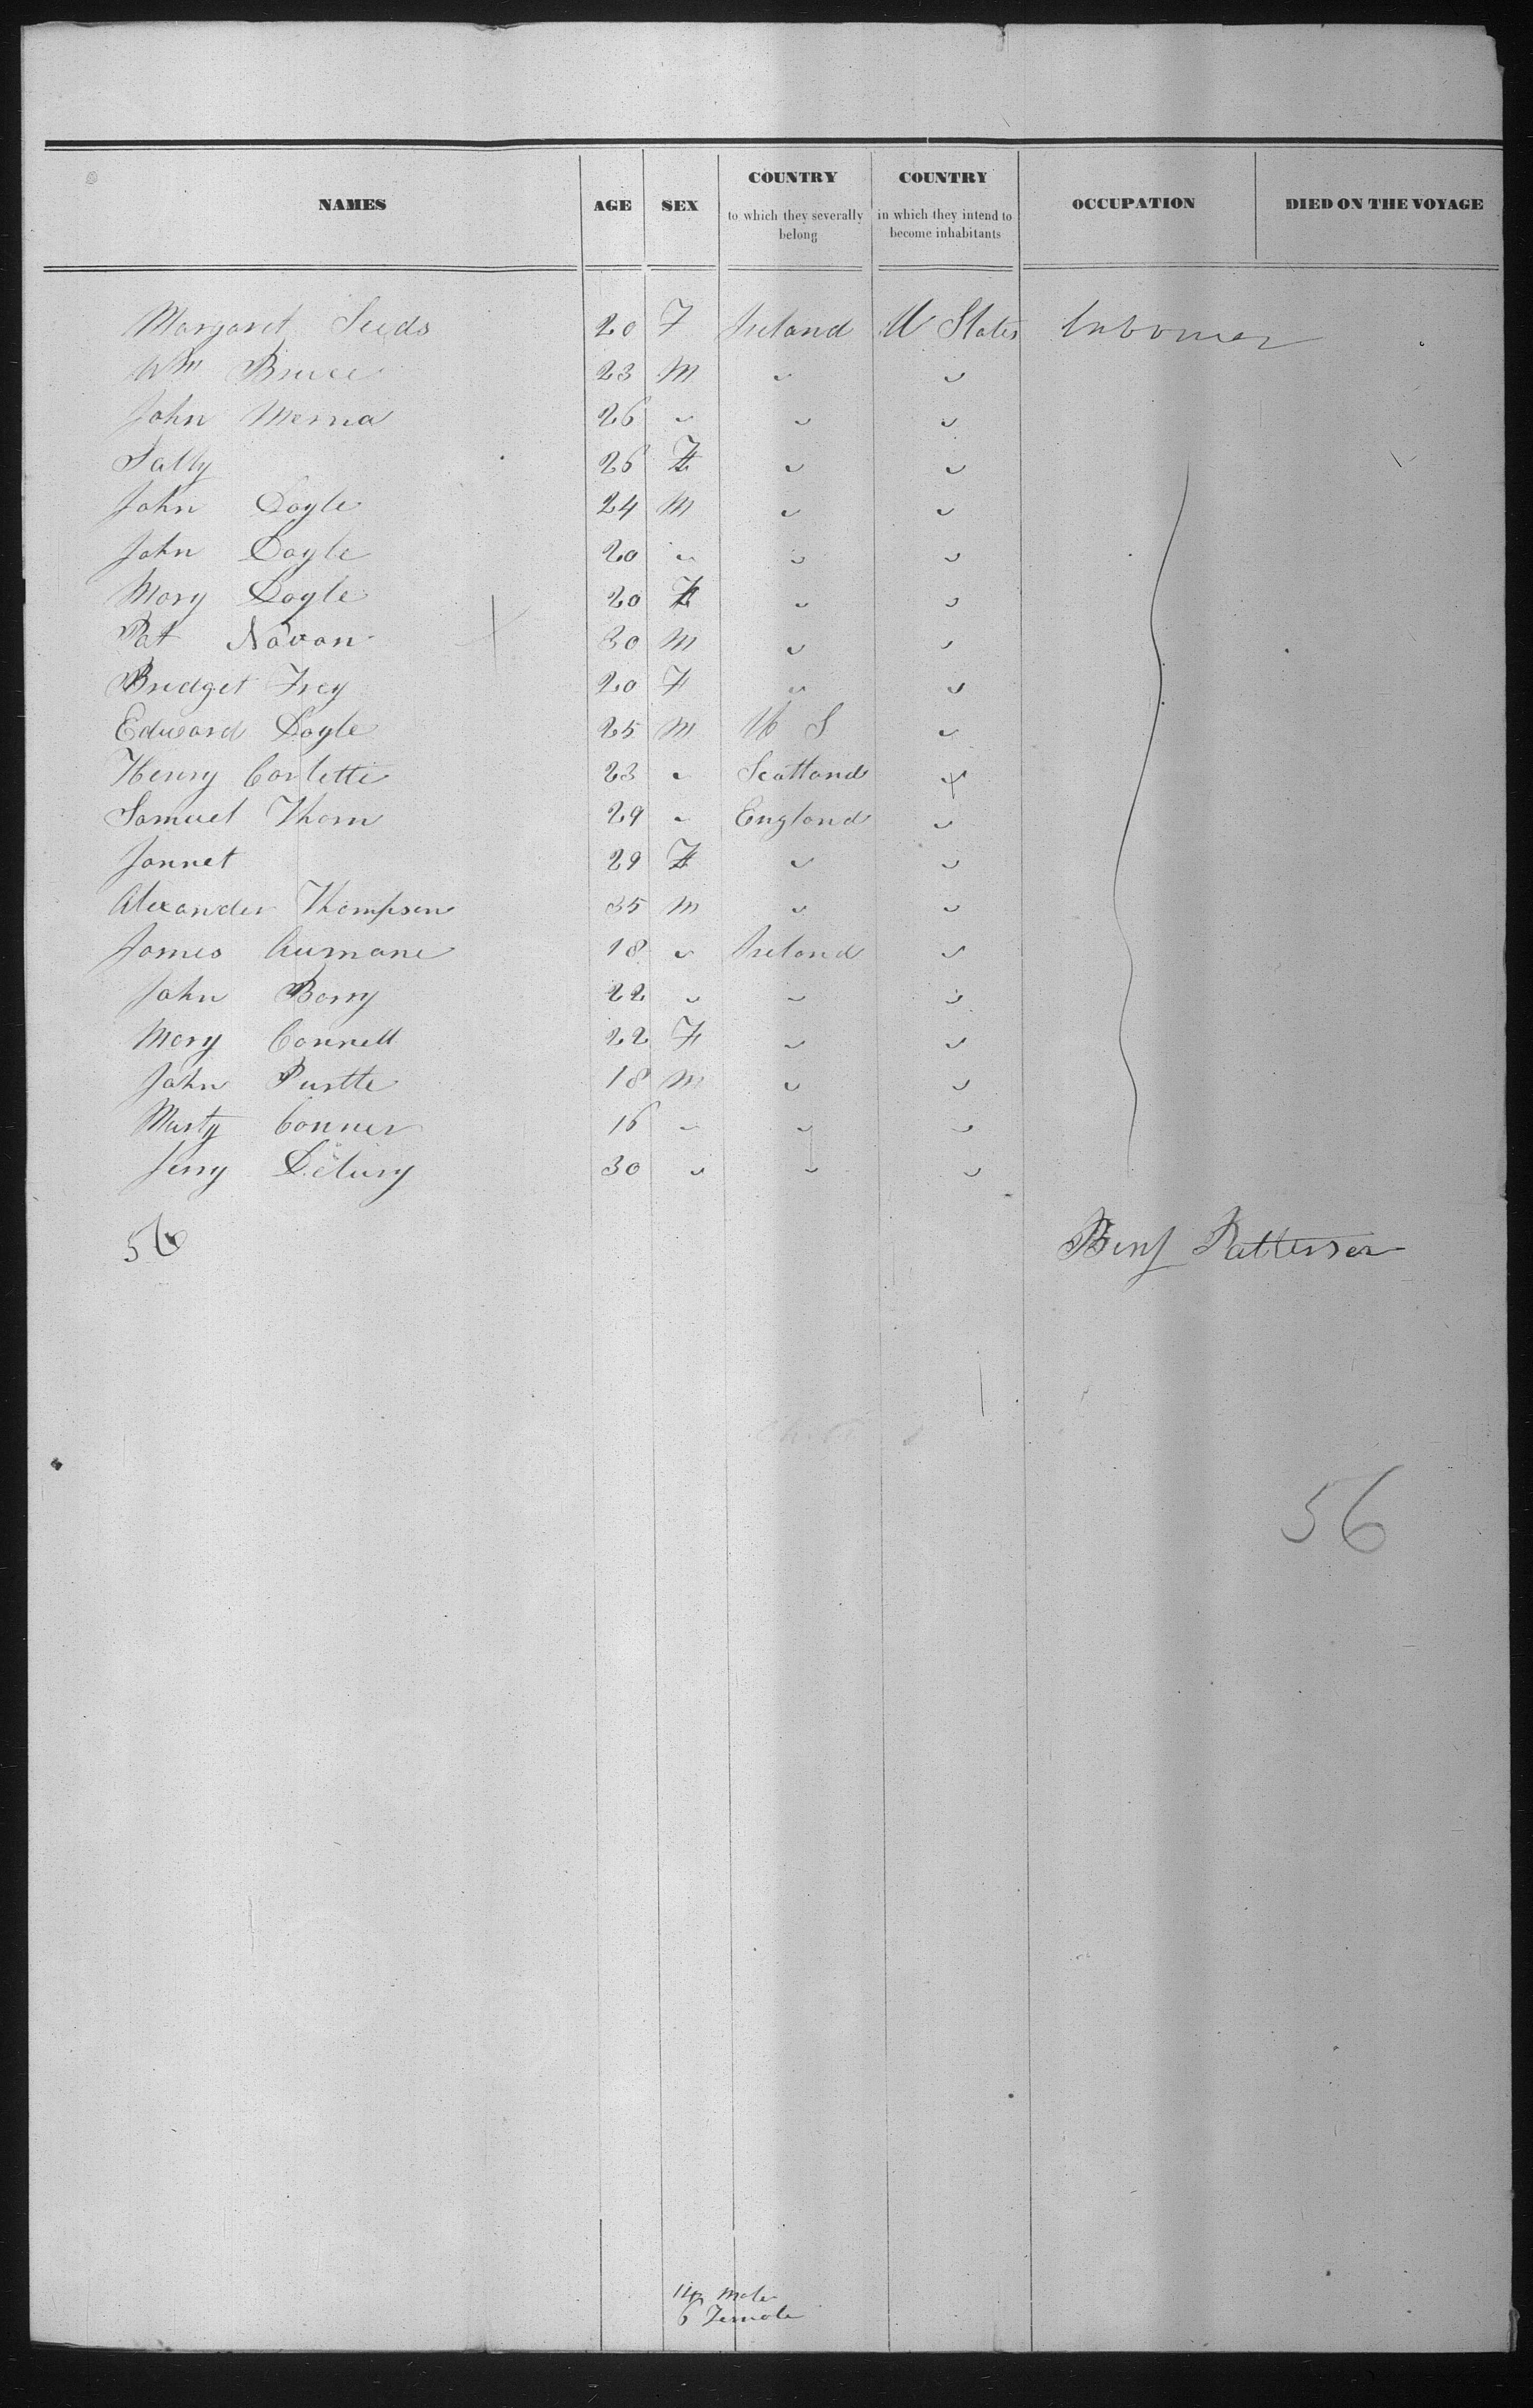 NAMES AGE SEX COUNTRY to which they severally belong COUNTRY in which they intend to become inhabitants OCCUPATION DIED ON THE VOYAGE
Margaret Seeds 20 F Ireland U States Labourer
Wm Bruce 23 M " "
John Merna 26 " " "
Sally 26 F " "
John Doyle 24 M " "
John Doyle 20 " " "
Mary Doyle 20 F " "
Pat Navan 30 M " "
Bridget Frey 20 F " "
Edward Doyle 25 M U S "
Henry Corlette 23 " Scotland "
Samuel Thorn 29 " England "
Jannet 29 F " "
Alexander Thompson 35 M " "
James 18 " Ireland "
John Barry 22 " " "
Mary Connell 22 F " "
John Purtle 18 M " "
Marty Conner 16 " " "
Jerry 30 " " "
56
Benj Patterson
56
14 Male
6 Female